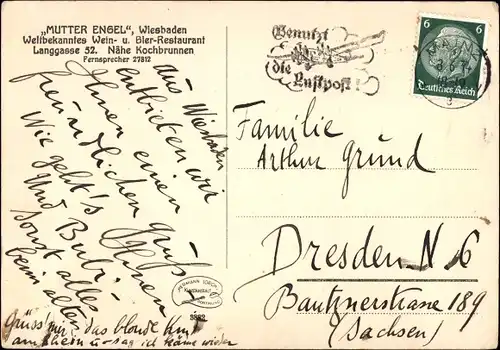 „MUTTER ENGEL“, Wiesbaden
Weltbekanntes Wein- u. Bier-Restaurant
Langgasse 52. Nähe Kochbrunnen
Fernsprecher 27812
Benutzt
die
Luftpost!
6 6
Deutsches Reich
Aus Wiesbaden
entbieten wir
Ihnen einen
freundlichen Gruß
Wie geht's Ihnen
und Bubi-
sonst alles
beim alten
Grüss' mir das blonde Kind
am Rhein u. sag ich käme wieder
Familie
Arthur Grund
Dresden N 6
Bautznerstrasse 189
(Sachsen)
HERMANN
3882